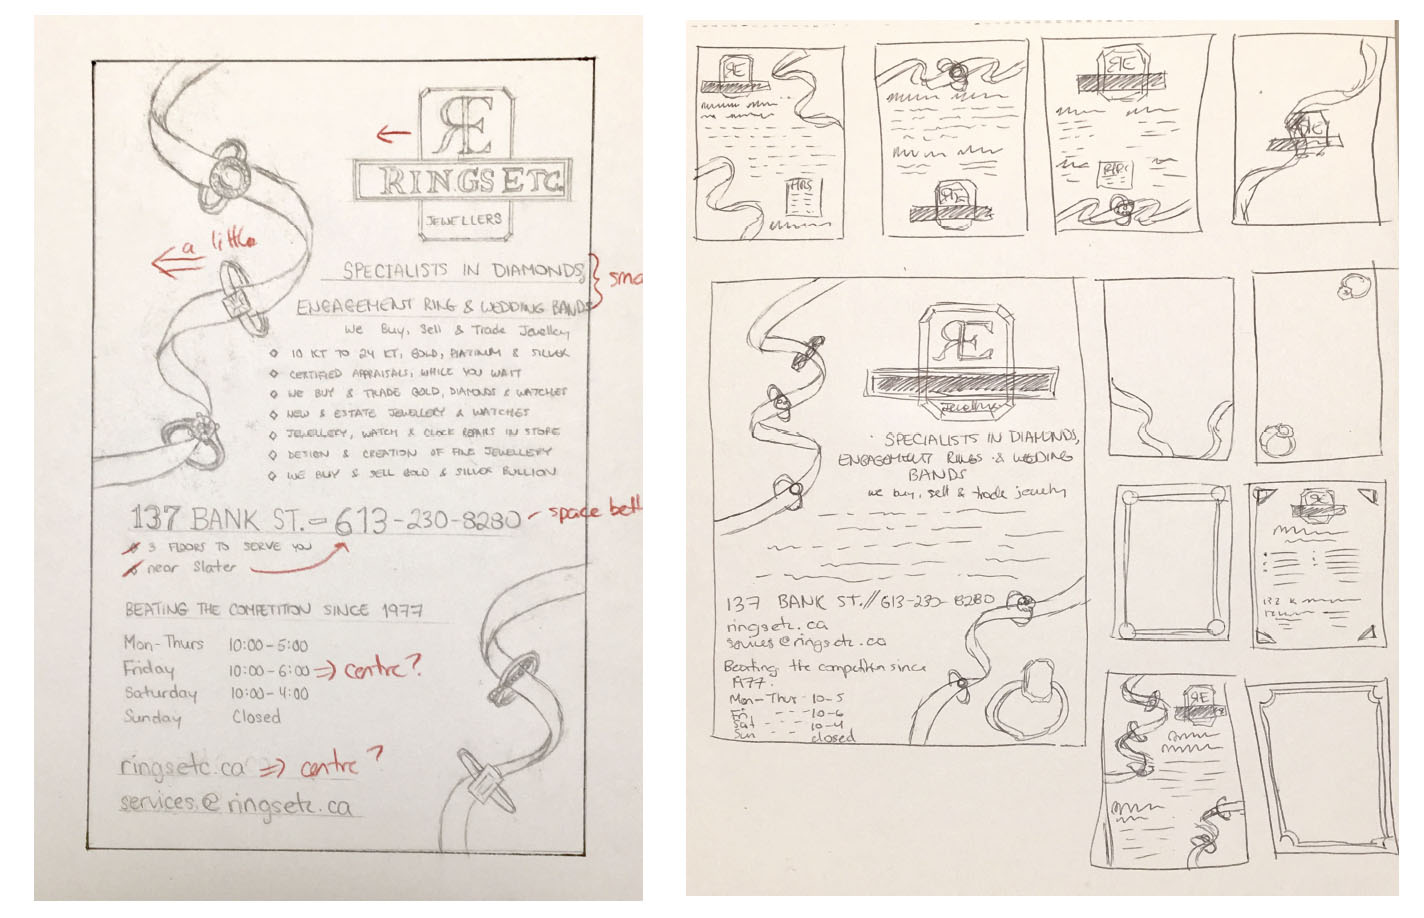 RE
RINGS ETC.
JEWELLERS
a little
SPECIALISTS IN DIAMONDS,
ENGAGEMENT RING & WEDDING BANDS
We Buy, Sell & Trade Jewellery
10 KT TO 24 KT, GOLD, PLATINUM & SILVER
CERTIFIED APPRAISALS, WHILE YOU WAIT
WE BUY & TRADE GOLD, DIAMONDS & WATCHES
NEW & ESTATE JEWELLERY & WATCHES
JEWELLERY, WATCH & CLOCK REPAIRS IN STORE
DESIGN & CREATION OF FINE JEWELLERY
WE BUY & SELL GOLD & SILVER BULLION
137 BANK ST. - 613-230-8280 - space
3 FLOORS TO SERVE YOU
near Slater
BEATING THE COMPETITION SINCE 1977
Mon-Thurs 10:00-5:00
Friday 10:00-6:00 => centre?
Saturday 10:00-4:00
Sunday Closed
ringsetc.ca => centre?
services@ringsetc.ca
RE
HRS
RE
RE
HRS
RE
RE
Jewellers
SPECIALISTS IN DIAMONDS,
ENGAGEMENT RINGS & WEDDING
BANDS
we buy, sell & trade jewelry
137 BANK ST.//613-230-8280
ringsetc.ca
services@ringsetc.ca
Beating the competition since
1977.
Mon-Thur - 10-5
Fri - - - 10-6
Sat - - - 10-4
Sun closed
RE
RE